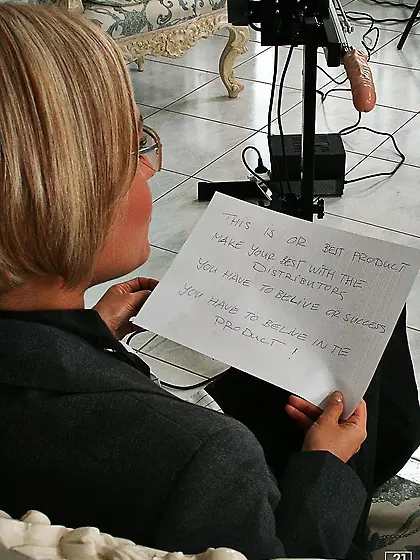 THIS IS OR BEIT PRODUCT
MAKE YOUR BEST WITH THE
DISTRIBUTORS
YOU HAVE TO BELIVE OR SUCCESS
YOU HAVE TO BELIVE IN TE
PRODUCT !
21